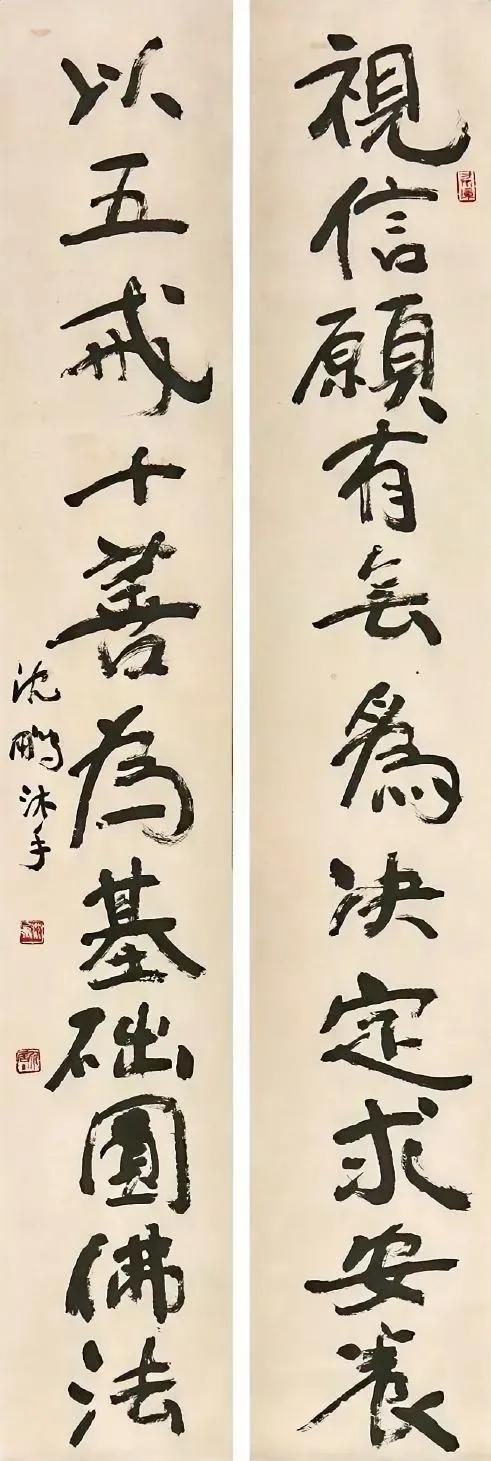 視信願有無爲决定求安養
以五戒十善為基础圓佛法
沈鵬沐手